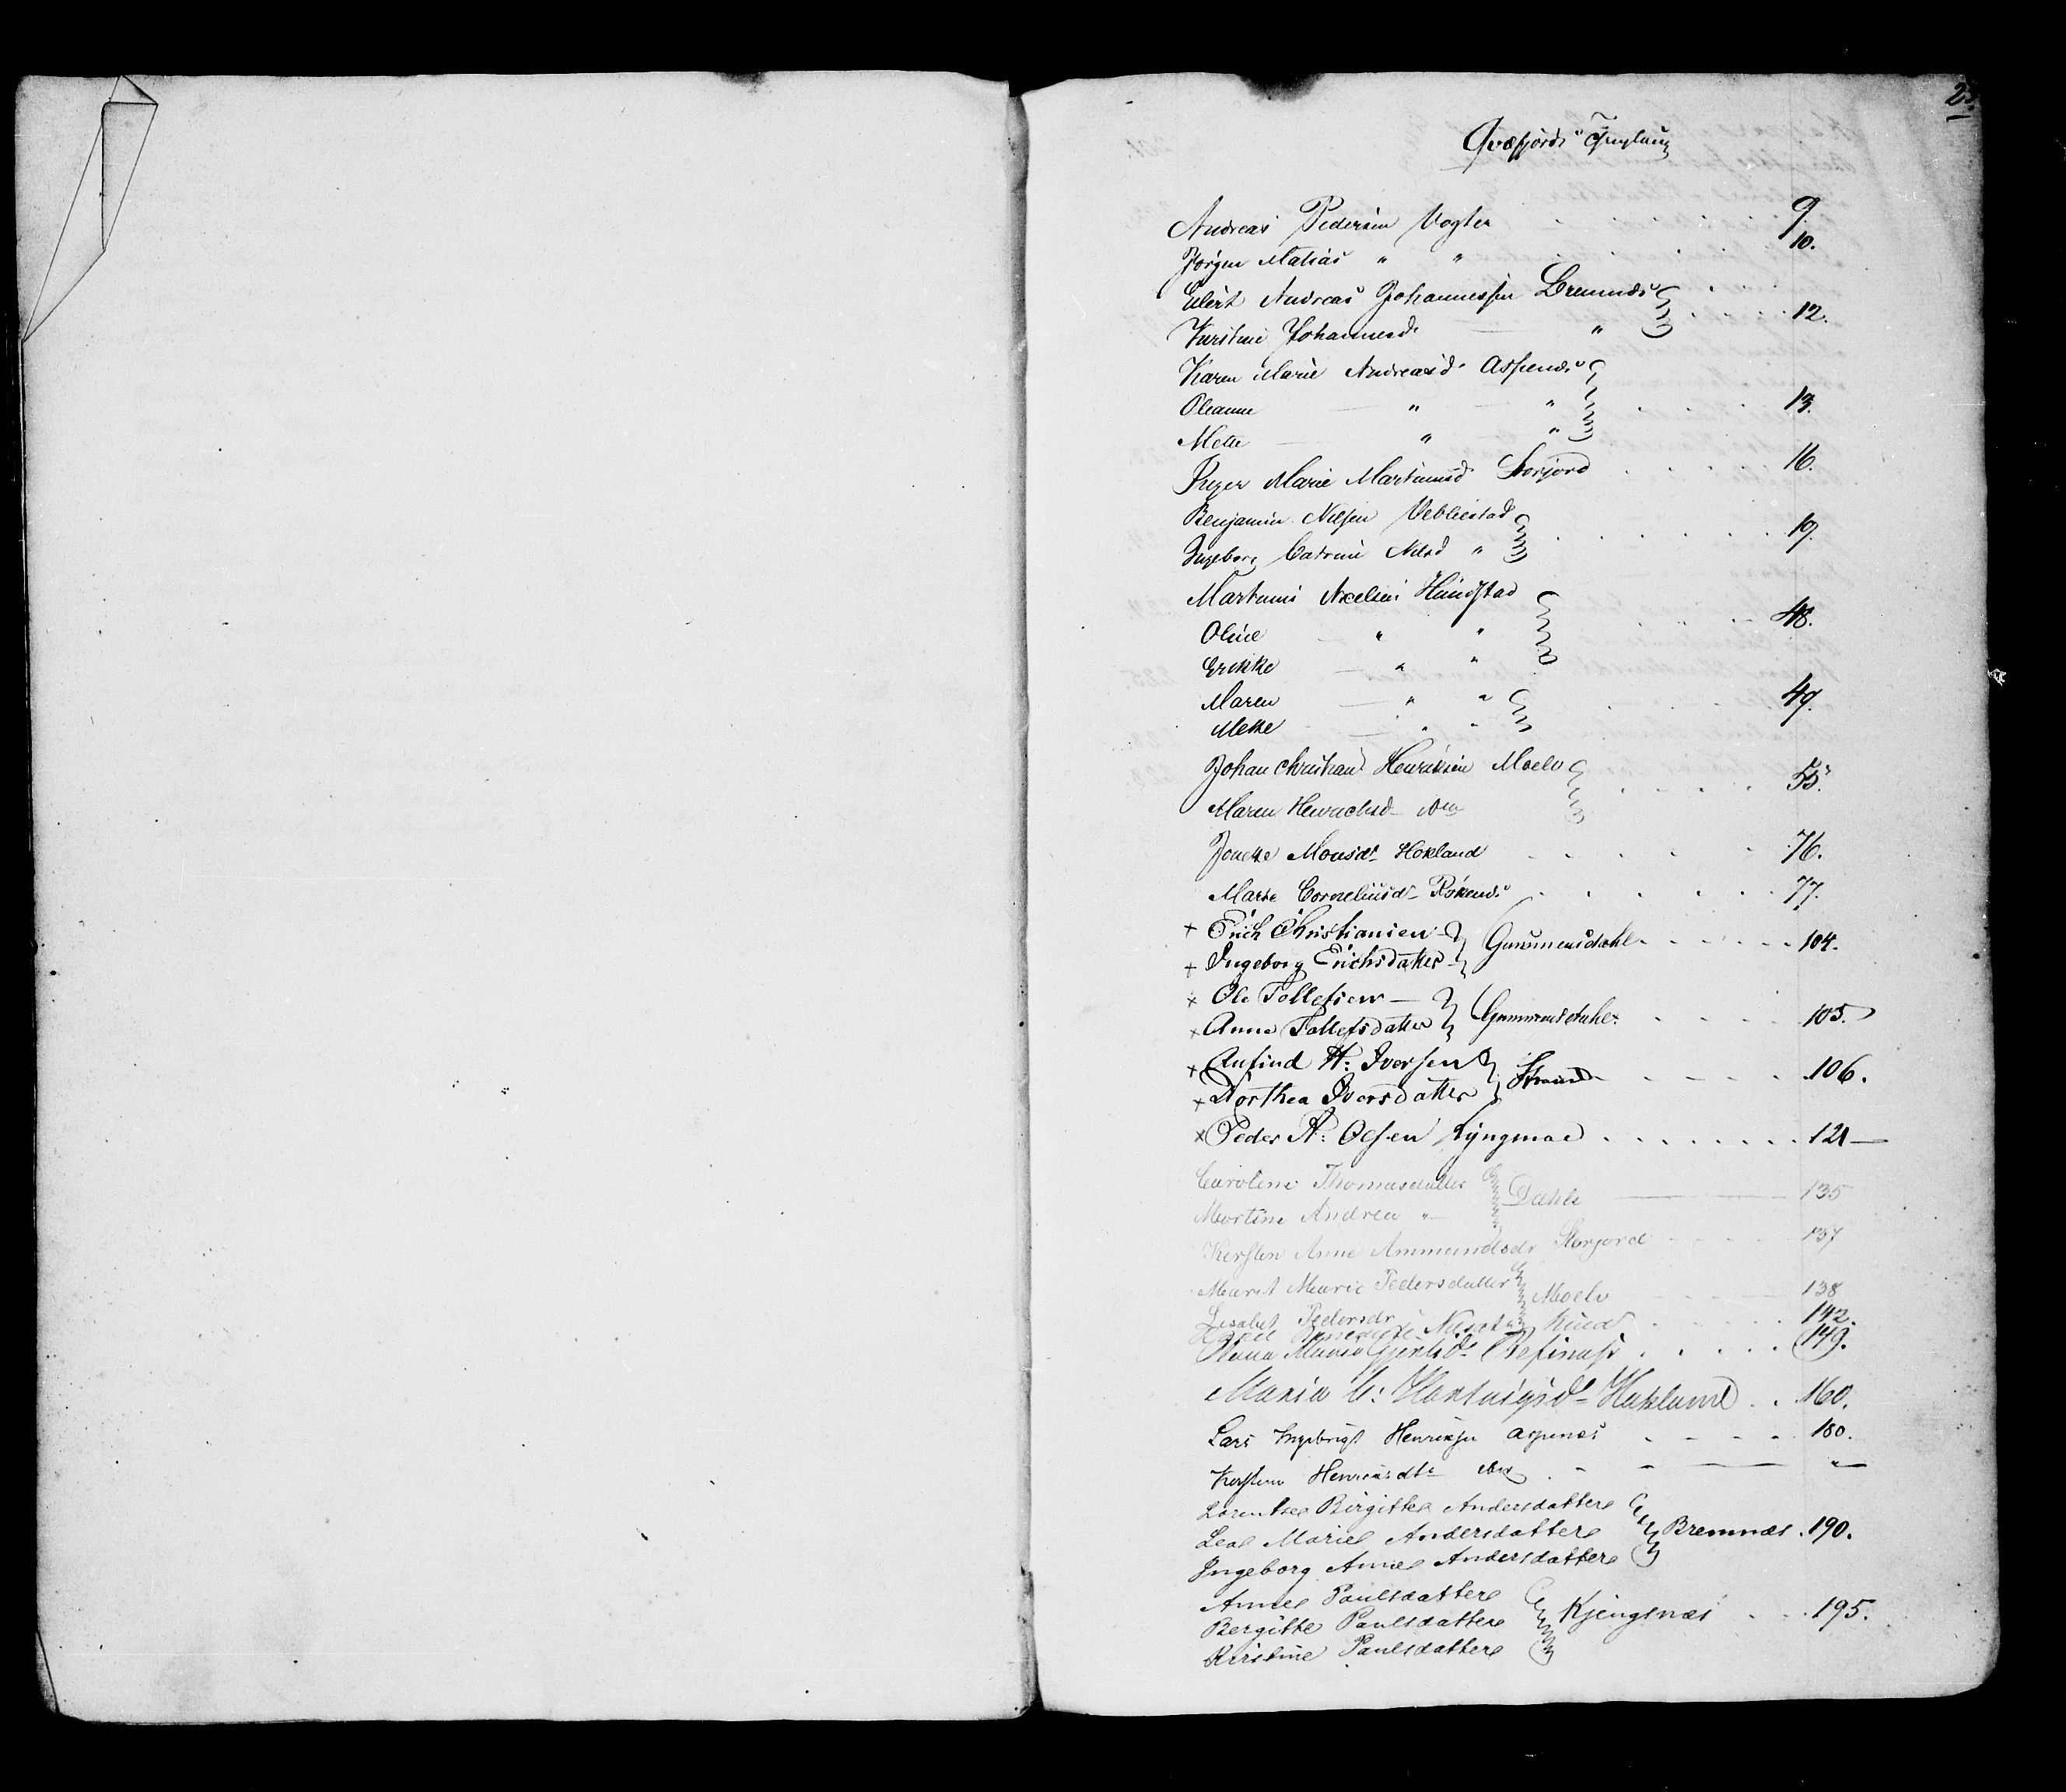 23.
Qvæfjords Thinglaug
Andreas Pedersen Vogter . . . . . 9.
Jörgen Matias " " . . . 10.
Eilert Andreas Johannessen Bremnæs
Kirstine Johannesd. — " . . . 12.
Karen Marie Andreasd. Aspenæs
Oleanne — " — " . . . 13.
Mette — " — "
Inger Marie Martinusd. Storjord . . . . 16.
Benjamin Nilsen Vebbestad
Ingeborg Catrine Nilsd " . . . . . . 19.
Martinus Axelsen Hundstad
Oline — " " . . . 48.
Erikke — " "
Maren — " " . . . 49.
Mette — " "
Johan Christian Henriksen Moelv
Maren Henrichsd — . . . . 55.
Monsdr Hokland . . . . . 76.
Marte Corneliusdr RöKenæs . . . . . 77.
+ Erich Christiansen —
+ Ingeborg Erichsdatter — Gummensdahl . . . . . . 104.
+ Ole Tollefsen —
+ Anne Tollefsdatter Gummensdahl . . . . . 105.
+ Anfind H: Iversen
+ Dorthea Iversdatter Strand . . . . . 106.
+ Peder A: Olsen Lyngmoe . . . . . . . . 121 —
Caroline Thomasdatter
Martine Andrea " — Dahle — 135
Kirsten Anne Ammundsdr Storjord . . . . 137
Marit Marie Pedersdatter
Moelv — 138
Lisabet Pedersdr
. . . . . 142.
Maria . . . . . 149.
Maria C: Hartvigsdr Haklund . . 160.
Lars Ingebrigt Henriksen Aspenæs . . . . 180.
Henriksdtr — — — "
Lorentse Birgitte Andersdatter
Lea Marie Andersdatter Bremnæs . 190.
Ingeborg Anne Andersdatter
Anne Paulsdatter
Bergitte Paulsdatter Kjengsnæs . . . 195.
Kirstine Paulsdatter